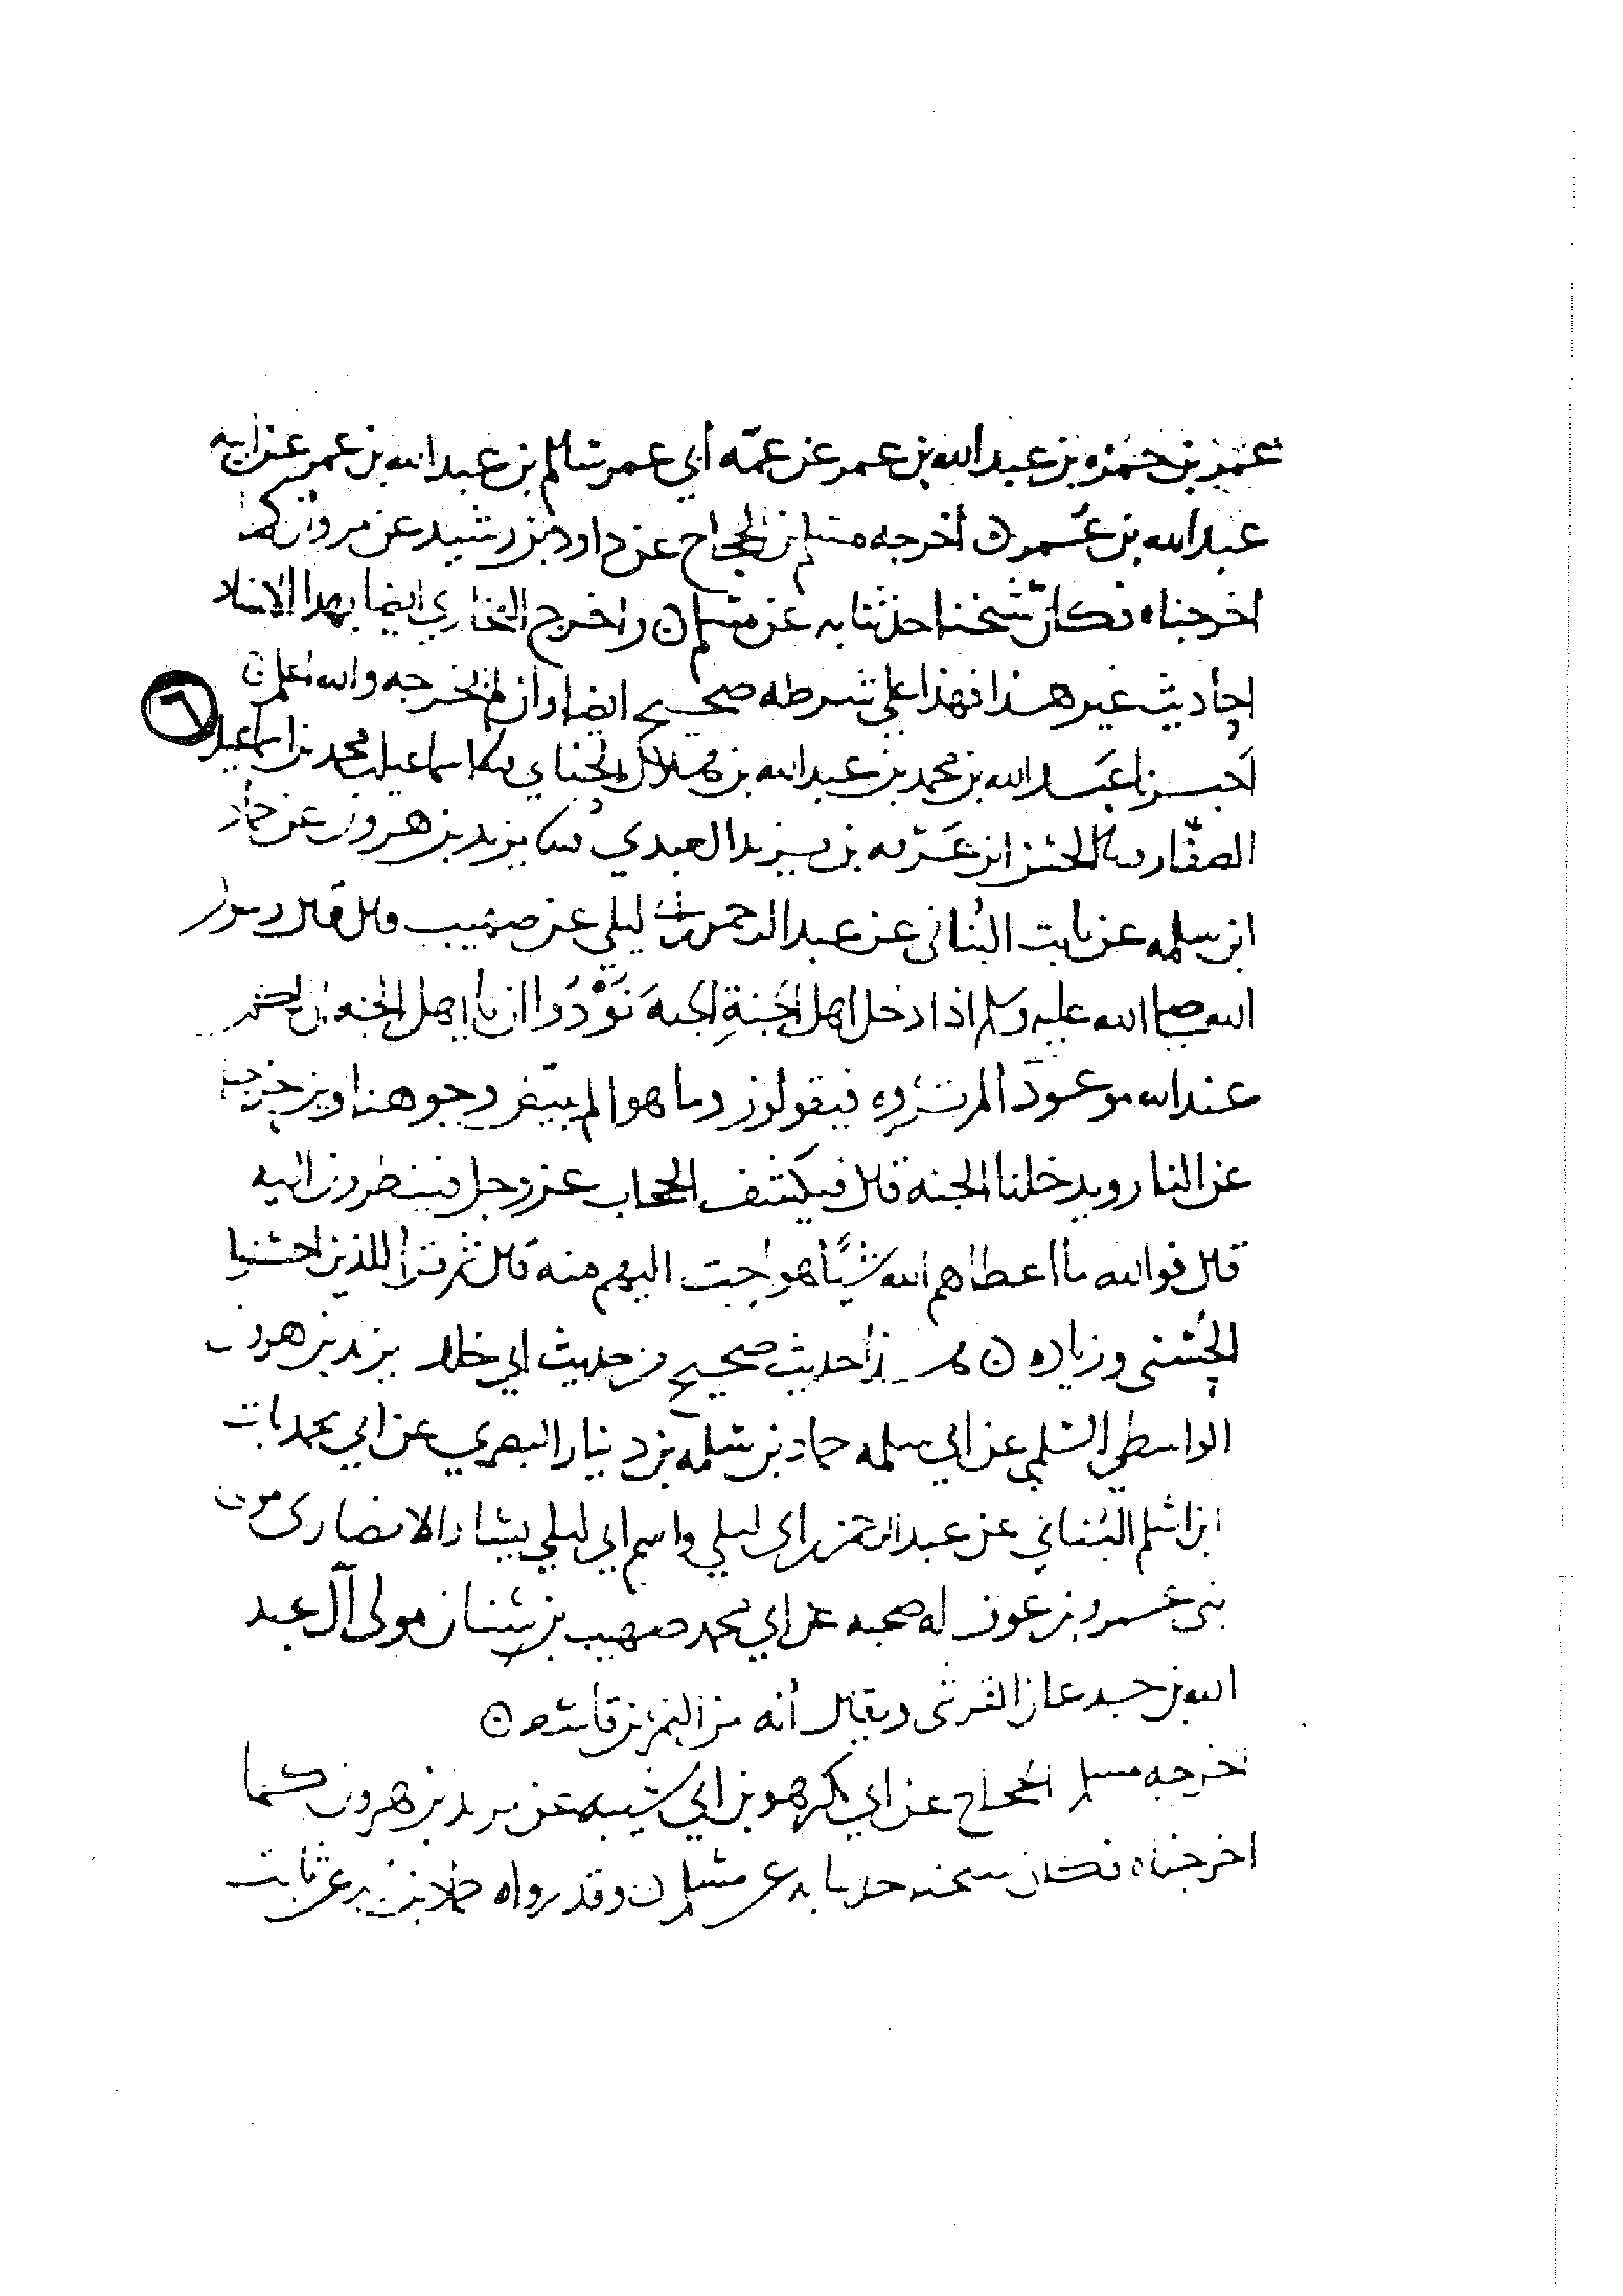 عمر بن حمزه بن عبد الله بن عمر عن عمّه أبي عمر سالم بن عبد الله بن عمر عن ابيه
عبد الله بن عُمر ن أخرجه مسلم بن الحجاج عن داود بن رشيد عن مروان كما
اخرجناه فكانّ شيخنا حدثنا به عن مسلم ن واخرج البخاري ايضا بهذا الاسناد
احاديث غير هذا فهذا علي شرطه صحيح ايضا وان لم يخرجه والله اعلم ن
٦
اخبرنا عبد الله بن محمد بن عبد الله بن هلال الحنائي ثنا اسماعيل بن محمد بن اسماعيل
الصفّار ثنا الحسن ابن عَرَفه بن يزيد العبدي ثنا يزيد بن هرون عن حماد
ابن سلمه عن ثابت البُناني عن عبد الرحمن بن ابي ليلي عن صهيب قال قال رسول
الله صلى الله عليه وسلم اذا دخل اهل الجنةِ الجنهَ نُوْدُوا ان يا اهل الجنه ان لكم
عند الله موعودًا لم تروه فيقولون وما هو الم يبيّض وجوهنا ويزحزحنا
عن النار ويدخلنا الجنه قال فيكشف الحجاب عز وجل فينظرون اليه
قال فوالله ما اعطاهم الله شيًا هو احبّ اليهم منه قال ثم قرأ للذين احسنوا
الحُسنى وزياده ن هذا حديث صحيح من حديث ابي خالد يزيد بن هرون
الواسطي السلمي عن ابي سلمه حماد بن سلمه بن دينار البصري عن ابي محمد ثابت
ابن اسلم البُناني عن عبد الرحمن بن ابي ليلي واسم ابي ليلي يسار الانصاري من
بني عمرو بن عوف له صحبه عن ابي محمد صهيب بن سنان مولى آل عبد
الله بن جدعان القرشي ويقال أنه من النمر بن قاسط ن
اخرجه مسلم بن الحجاج عن ابي بكر هو بن ابي شيبه عن يزيد بن هرون كما
اخرجناه فكان شيخنا حدثنا به عن مسلم ن وقد رواه حماد بن زيد عن ثابت